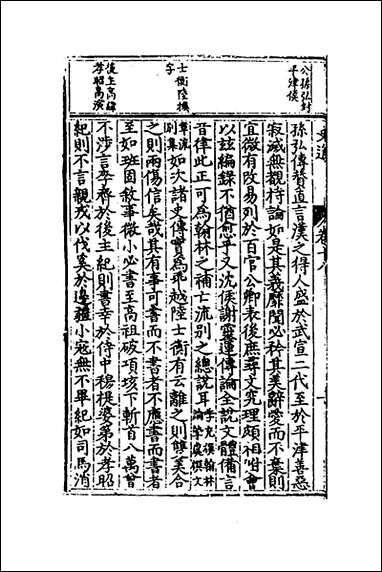 公孫弘封
平津侯
士衡陸機
字
後主高緯
孝昭高演
史通
卷十八
孫弘傳贊直言漢之得人盛於武宣二代至於平津善惡
寂滅無觀持論如是其義靡聞必矜其美辭愛而不棄則
宜微有改易列於百官公卿表後庶尋文究理頗相附會
以茲編錄不猶愈乎又沈侯謝靈運傳論全說文體備言
音律此正可為翰林之補亡流別之總說耳李充撰翰林論摯虞撰文
章流別集如次諸史傳實為乖越陸士衡有云離之則雙美合
之則兩傷信矣哉其有事可書而不書者不應書而書者
至如班固敘事微小必書至高祖破項垓下斬首八萬曾
不涉言李齊於後主紀則書幸於侍中穆提婆第於孝昭
紀則不言親戎以伐奚於邊疆小寇無不畢紀如司馬消